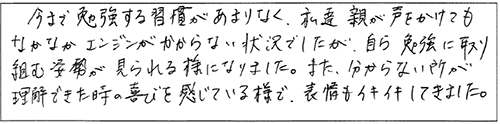 今まで勉強する習慣があまりなく、私達親が声をかけても
なかなかエンジンがかからない状況でしたが、自ら勉強に取り
組む姿勢が見られる様になりました。また、分からない所が
理解できた時の喜びを感じている様で、表情もイキイキしてきました。